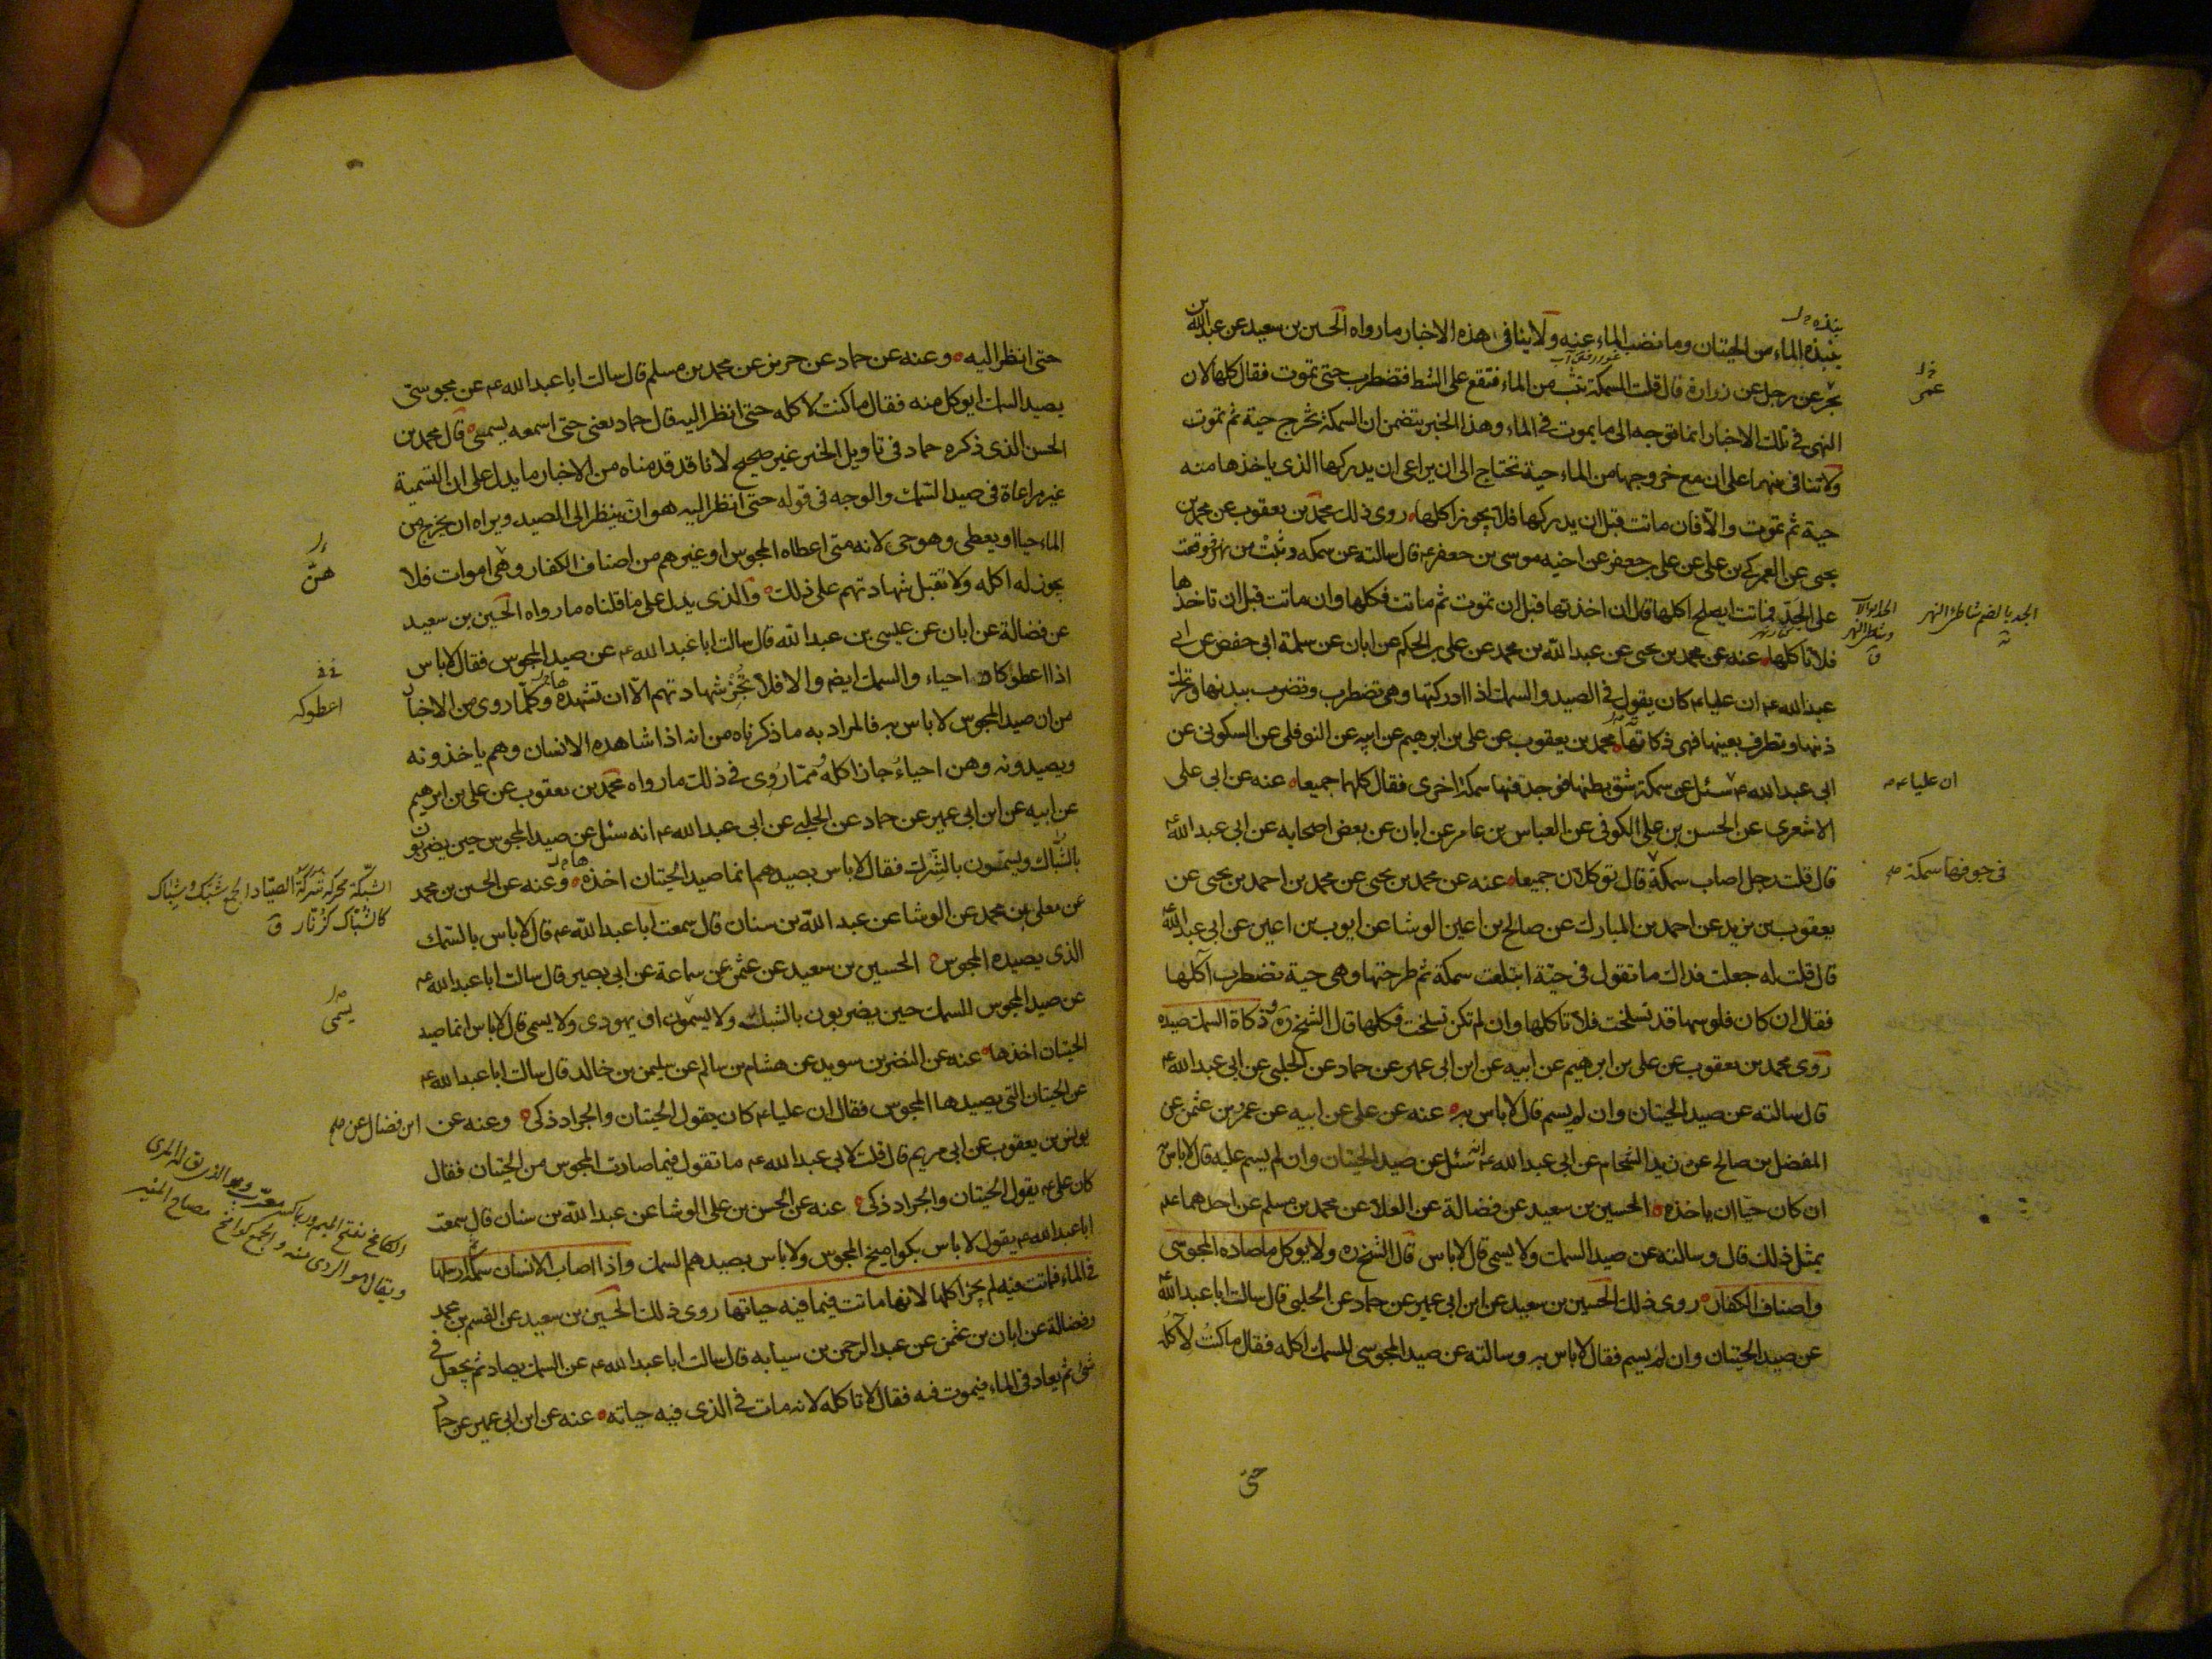 ينبذه الماء من الحيتان وما نضب الماء عنه ولا ينافى هذه الاخبار ما رواه الحسين بن سعيد عن عبد الله بن
بحر عن رجل عن زرارة قال قلت السمكة تثب من الماء فتقع على الشط فتضطرب حتى تموت فقال كلها لان
النهى فى تلك الاخبار انما توجه الى ما يموت فى الماء وهذا الخبر يتضمن ان السمكة تخرج حية ثم تموت
ولا تنافى بينهما على ان مع خروجها من الماء حية تحتاج الى ان يراعى ان يدركها الذى ياخذها منه
حية ثم تموت والا فان ماتت قبل ان يدركها فلا يجوز اكلها روى ذلك محمد بن يعقوب عن محمد بن
يحيى عن العمركى بن على عن على بن جعفر عن اخيه موسى بن جعفر ع قال سالته عن سمكه وثبت من نهر فوقعت
على الجد فماتت ايصلح اكلها قال ان اخذتها قبل ان تموت ثم ماتت فكلها وان ماتت قبل ان تاخذها
فلا تاكلها عنه عن محمد بن يحيى عن عبد الله بن محمد عن على بن الحكم عن ابان عن سلمة ابى حفص عن ابى
عبد الله ع ان عليا ع كان يقول فى الصيد والسمك اذا ادركتها وهى تضطرب وتضرب بيديها وتحرك
ذنبها وتطرف بعينها فهى ذكاتها محمد بن يعقوب عن على بن ابرهيم عن ابيه عن النوفلى عن السكونى عن
ابى عبد الله ع سئل عن سمكة شق بطنها فوجد فيها سمكة اخرى فقال كلهما جميعا عنه عن ابى على
الاشعرى عن الحسن بن على الكوفى عن العباس بن عامر عن ابان عن بعض اصحابه عن ابى عبد الله ع
قال قلت رجل اصاب سمكة قال توكلان جميعا عنه عن محمد بن يحيى عن محمد بن احمد بن يحيى عن
يعقوب بن يزيد عن احمد بن المبارك عن صالح بن اعين الوشا عن ايوب بن اعين عن ابى عبد الله ع
قال قلت له جعلت فداك ما تقول فى حية ابتلعت سمكة ثم طرحتها وهى حية تضطرب آكلها
فقال ان كان فلوسها قد تسلخت فلا تاكلها وان لم تكن تسلخت فكلها قال الشيخ ره وذكاة السمك صيده
روى محمد بن يعقوب عن على بن ابرهيم عن ابيه عن ابن ابى عمير عن حماد عن الحلبى عن ابى عبد الله ع
قال سالته عن صيد الحيتان وان لم يسم قال لا باس به عنه عن على عن ابيه عن عمرو بن عثمن عن
المفضل بن صالح عن زيد الشحام عن ابى عبد الله ع انه سئل عن صيد الحيتان وان لم يسم عليه قال لا باس به
ان كان حيا ان ياخذه الحسين بن سعيد عن فضالة عن العلا عن محمد بن مسلم عن احدهما ع
بمثل ذلك قال وسالته عن صيد السمك ولا يسمى قال لا باس قال الشيخ ره ولا يوكل ما صاده المجوسى
واصناف الكفار روى ذلك الحسين بن سعيد عن ابن ابى عمير عن حماد عن الحلبى قال سالت ابا عبد الله ع
عن صيد الحيتان وان لم يسم فقال لا باس به وسالته عن صيد المجوسى للسمك اكله فقال ما كنت لآكله
حتى
عمر
الجد بالضم شاطئ النهر
ان عليا ع
فى جوفها سمكة
حتى انظر اليه وعنه عن حماد عن حريز عن محمد بن مسلم قال سالت ابا عبد الله ع عن مجوسى
يصيد السمك ايوكل منه فقال ما كنت لآكله حتى انظر اليه قال حماد يعنى حتى اسمعه يسمى قال محمد بن
الحسن الذى ذكره حماد فى تاويل الخبر غير صحيح لانا قد قدمناه من الاخبار ما يدل على ان التسمية
غير مراعاة فى صيد السمك والوجه فى قوله حتى انظر اليه هو ان ينظر الى الصيد ويراه ان يخرج من
الماء حيا او يعطى وهو حى لانه متى اعطاه المجوس او غيرهم من اصناف الكفار وهى اموات فلا
يجوز له اكله ولا تقبل شهادتهم على ذلك والذى يدل على ما قلناه ما رواه الحسين بن سعيد
عن فضالة عن ابان عن عيسى بن عبد الله قال سالت ابا عبد الله ع عن صيد المجوس فقال لا باس
اذا اعطوكاه احياء والسمك ايضا والا فلا تجز شهادتهم الا ان تشهده وكلما روى من الاخبار
من ان صيد المجوس لا باس به فالمراد به ما ذكرناه من انه اذا شاهده الانسان وهم ياخذونه
ويصيدونه وهن احياء جاز اكله مما روى فى ذلك ما رواه محمد بن يعقوب عن على بن ابرهيم
عن ابيه عن ابن ابى عمير عن حماد عن الحلبى عن ابى عبد الله ع انه سئل عن صيد المجوس حين يضربون
بالشباك ويسمون بالشرك فقال لا باس بصيدهم انما صيد الحيتان اخذه وعنه عن الحسين بن محمد
عن معلى بن محمد عن الوشا عن عبد الله بن سنان قال سمعت ابا عبد الله ع قال لا باس بالسمك
الذى يصيده المجوس الحسين بن سعيد عن عثمن عن سماعة عن ابى بصير قال سالت ابا عبد الله ع
عن صيد المجوس للسمك حين يضربون بالشبك ولا يسمون او يهودى ولا يسمى قال لا باس انما صيد
الحيتان اخذها عنه عن النضر بن سويد عن هشام بن سالم عن سليمن بن خالد قال سالت ابا عبد الله ع
عن الحيتان التى يصيدها المجوس فقال ان عليا ع كان يقول الحيتان والجراد ذكى وعنه عن
يونس بن يعقوب عن ابى مريم قال قلت لابى عبد الله ع ما تقول فيما صادت المجوس من الحيتان فقال
كان على ع يقول الحيتان والجراد ذكى عنه عن الحسن بن على الوشا عن عبد الله بن سنان قال سمعت
ابا عبد الله ع يقول لا باس بكواميخ المجوس ولا باس بصيدهم السمك واذا اصاب الانسان سمكا وارسلها
فى الماء فماتت فيه لم يجز اكلها لانها ماتت فيما فيه حياتها روى ذلك الحسين بن سعيد عن القسم بن محمد
وفضالة عن ابان بن عثمن عن عبد الرحمن بن سيابه قال سالت ابا عبد الله ع عن السمك يصاد ثم يجعل فى
شئ ثم يعاد فى الماء فيموت فيه فقال لا تاكله لانه مات فى الذى فيه حياته عنه عن ابن ابى عمير عن حماد
هن
اعطوكه
الشبكة محركة شركة الصياد الجمع شبك وشباك
كالشباك كزنار ق
يسمى
ابن فضال عن